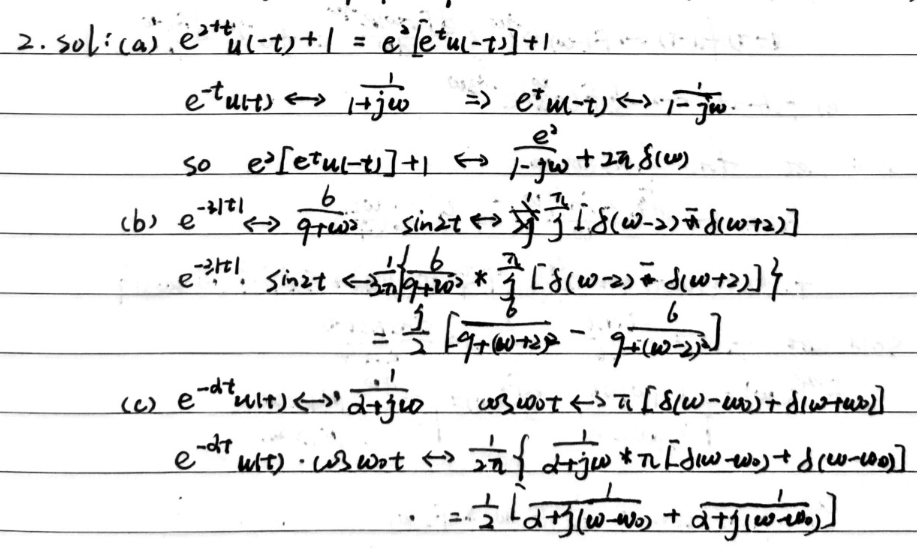 2. sol: (a). e^{2+t}u(-t)+1 = e²[e^t u(-t)]+1
e^{-t}u(t) ↔ 1/(1+jω) ⇒ e^t u(-t) ↔ 1/(1-jω).
so e²[e^t u(-t)]+1 ↔ e²/(1-jω) + 2π δ(ω)
(b) e^{-3|t|} ↔ 6/(9+ω²) sin2t ↔ π/j [δ(ω-2) - δ(ω+2)]
e^{-3|t|} · sin2t ↔ 1/2π {6/(9+ω²) * π/j [δ(ω-2) - δ(ω+2)]}
= j/2 [6/(9+(ω+2)²) - 6/(9+(ω-2)²)]
(c) e^{-αt}u(t) ↔ 1/(α+jω) cosω₀t ↔ π[δ(ω-ω₀)+δ(ω+ω₀)]
e^{-αt}u(t)·cosω₀t ↔ 1/2π { 1/(α+jω) * π[δ(ω-ω₀)+δ(ω-ω₀)]
= 1/2 [1/(α+j(ω-ω₀)) + 1/(α+j(ω-ω₀))]